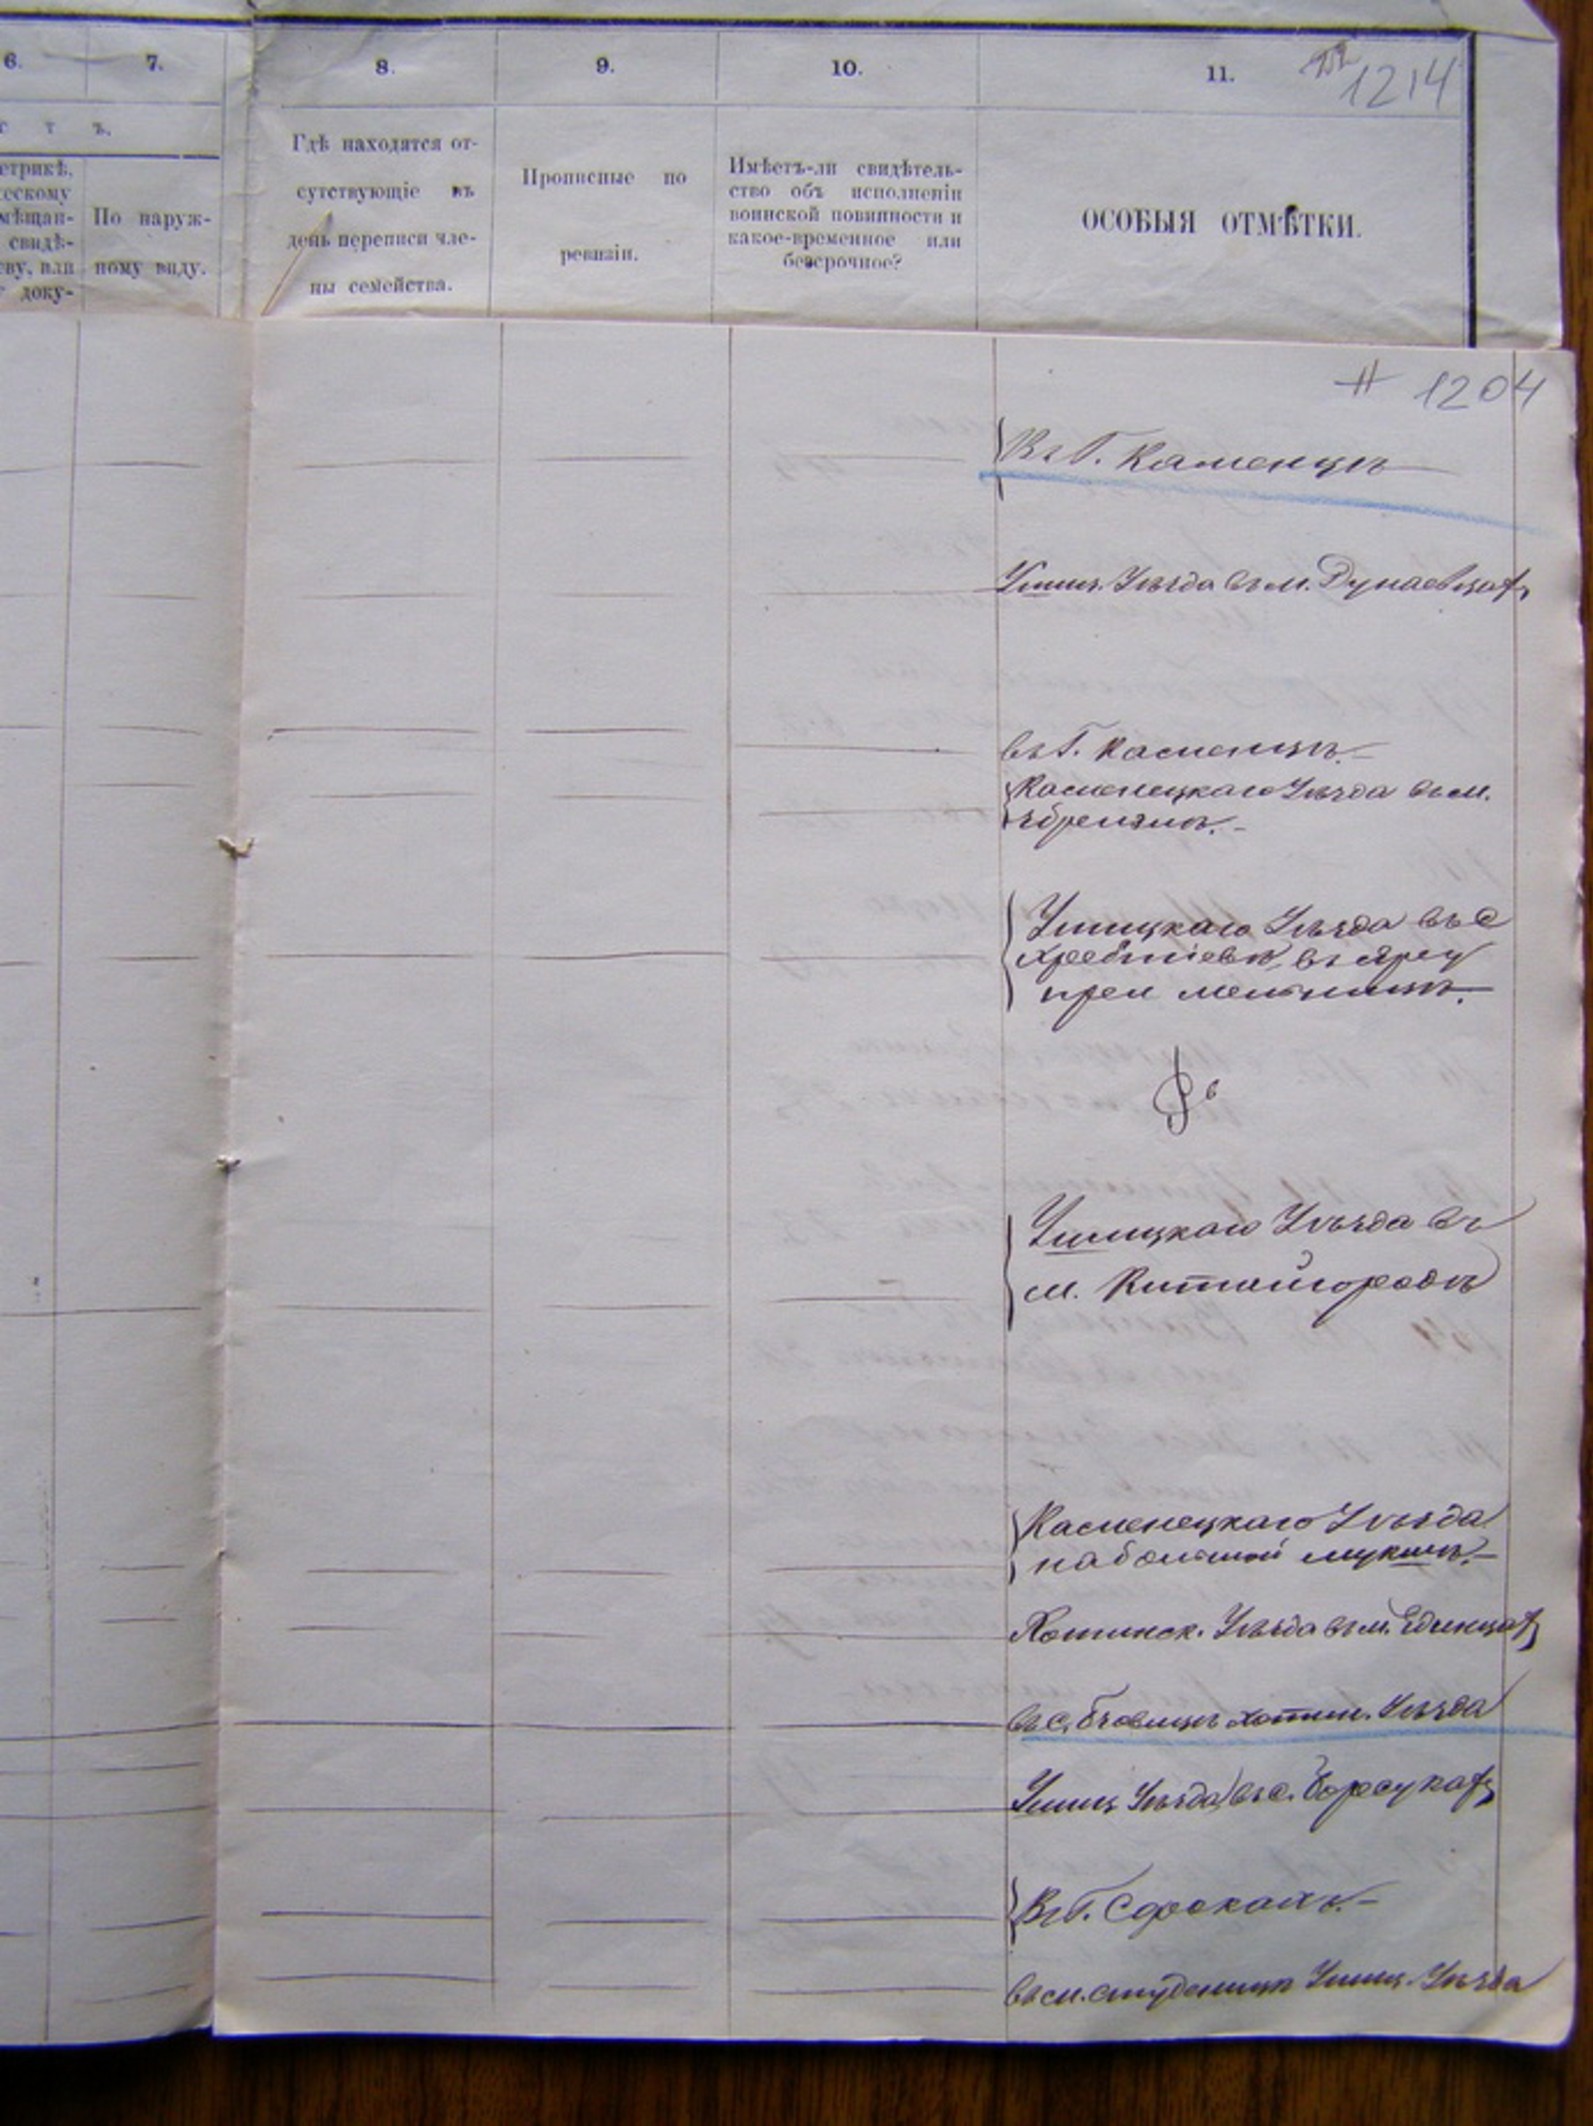 6. 7. 8. 9. 10. 11. 1214
т ъ.
етрикѣ,
ческому
мѣщан-
свидѣ-
ву, или
доку-
По наруж-
ному виду.
Гдѣ находятся от-
сутствующіе въ
день переписи чле-
ны семейства.
Прописные по
ревизіи.
Имѣетъ-ли свидѣтель-
ство объ исполненіи
воинской повинности и
какое-временное или
безсрочное?
ОСОБЫЯ ОТМѢТКИ.
1204
Въ Г. Каменцѣ
Ушиц. Уѣзда въ м. Дунаевцахъ
въ Г. Каменцѣ.
Каменецкаго Уѣзда въ м.
Ушицкаго Уѣзда въ с
Хребтіевѣ, въ
мельницѣ.
Ушицкаго Уѣзда въ
м. Китайгородѣ
Каменецкаго Уѣзда
на большой мукшѣ.
Хотинск. Уѣзда въ м. Единцахъ
въ с. Хотин. Уѣзда
Ушиц Уѣзда въ с. Борсукахъ
Въ Г. Сорокахъ.
въ м. Студеницѣ Ушиц. Уѣзда